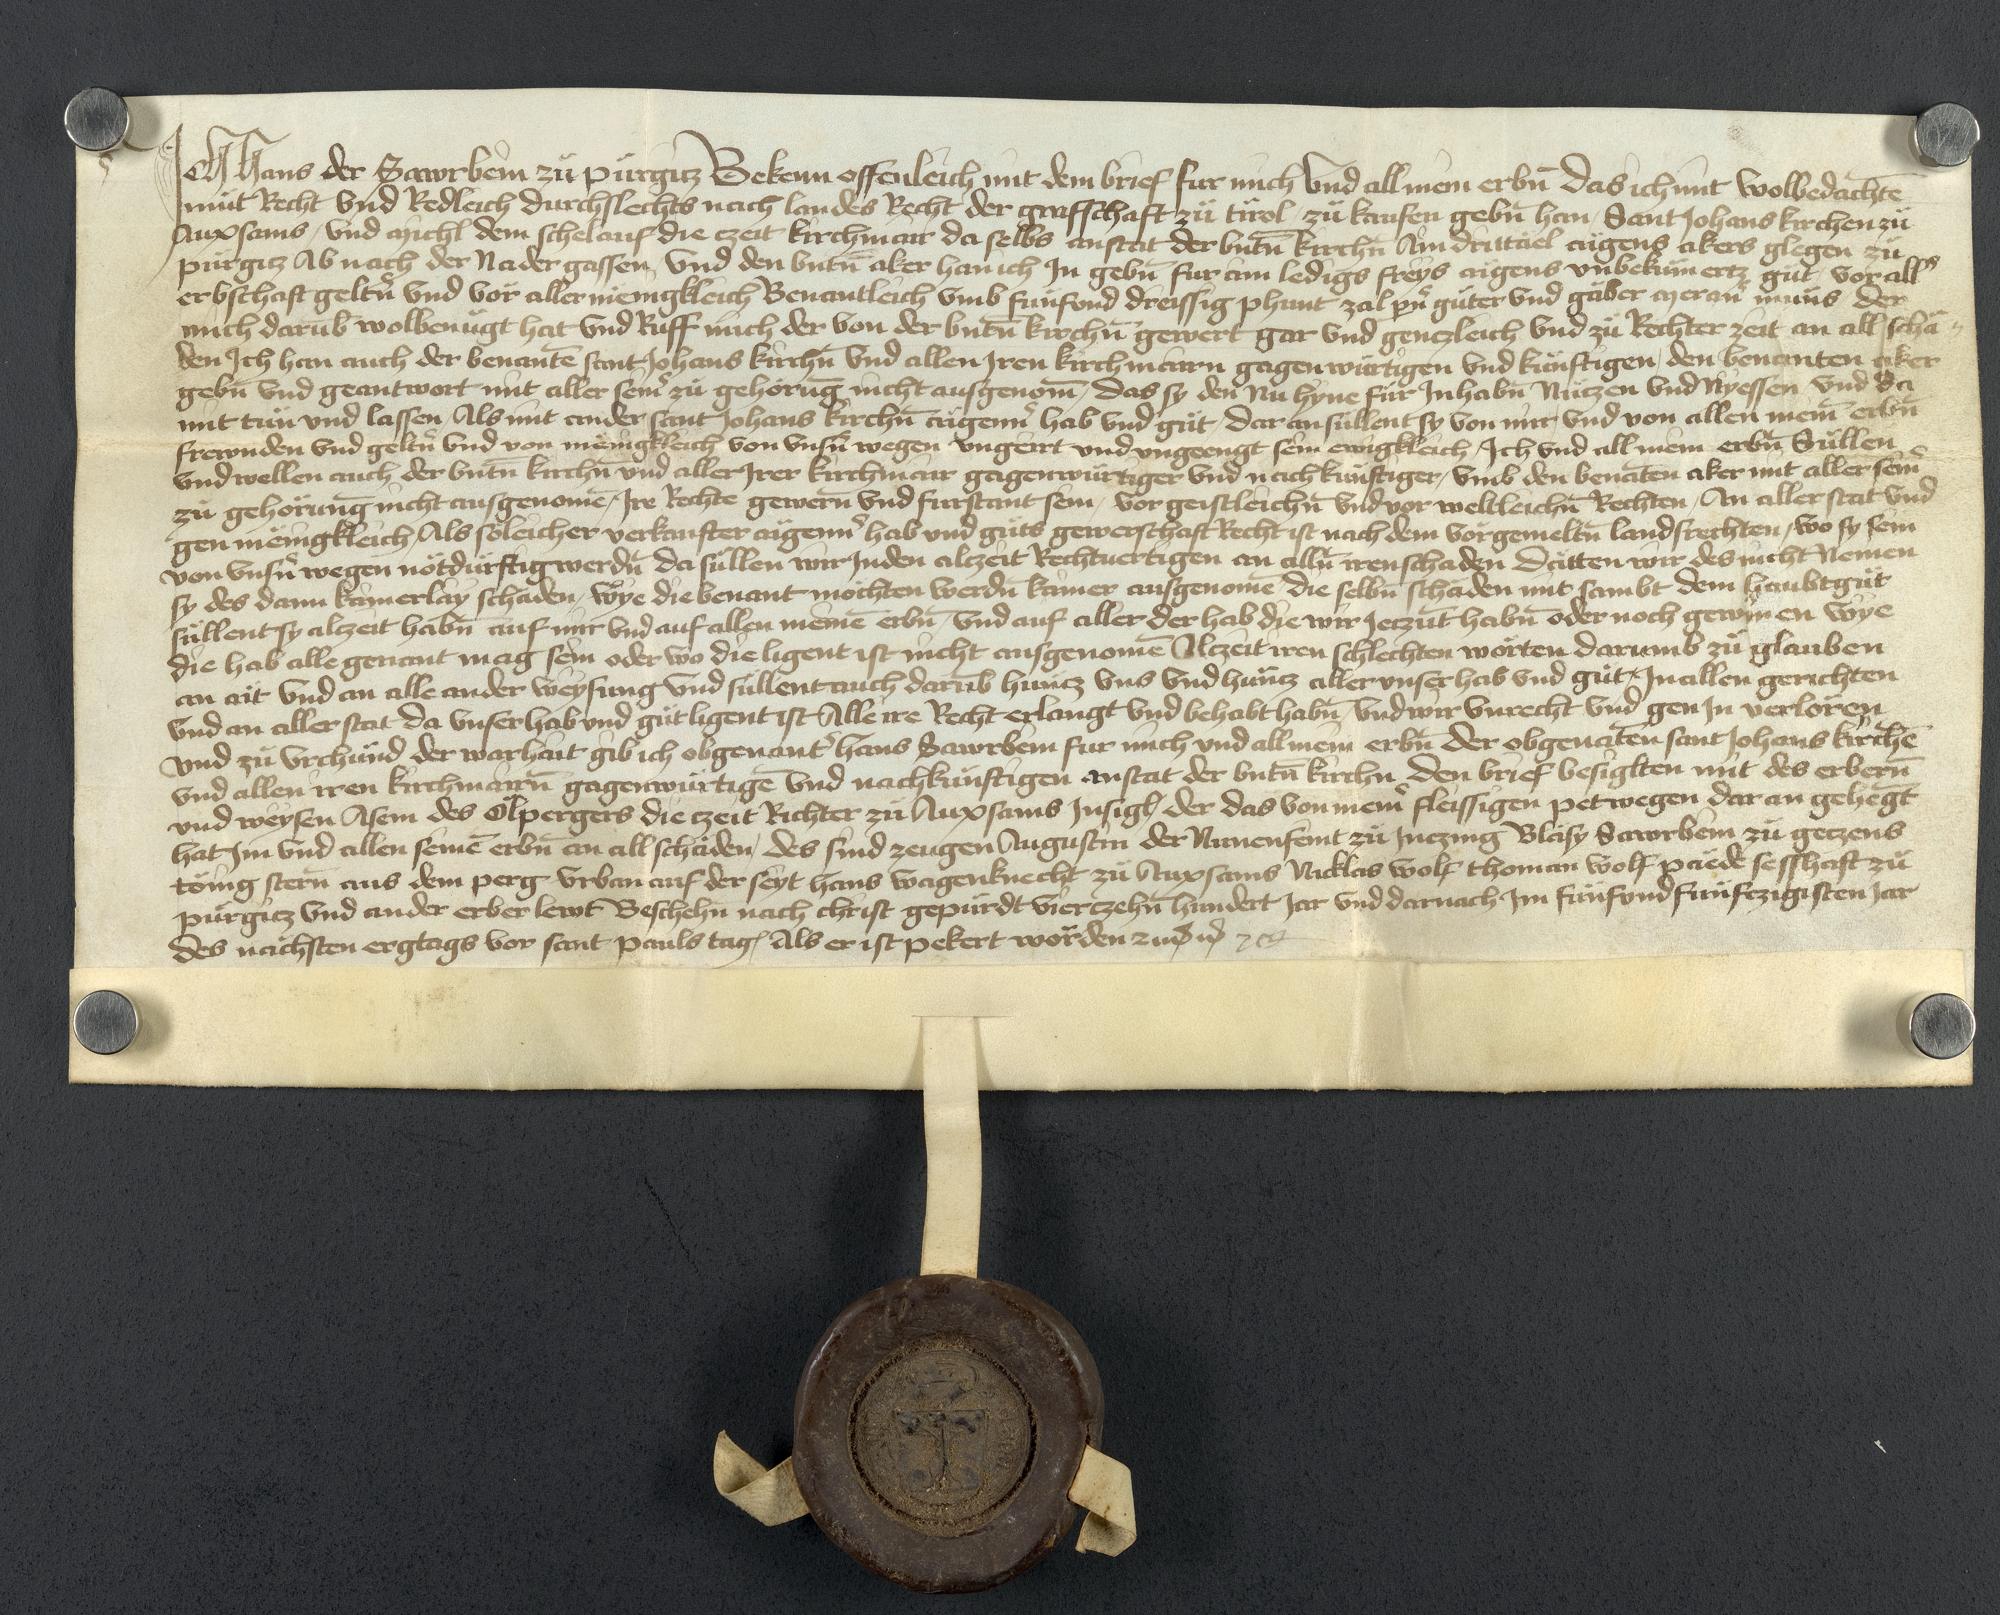 Ich Hans der Sawrbein zu pürgitz Bekenn offenleich mit dem brief fur mich vnd all mein erbn̄ Das ich mit wolbedachtē
müt Recht vnd Redleich durchslechts nach landes Recht der graffschaft zů tirol zů kaufen gebn̄ han Sant Johans kirchen zů
Auxsams vnd Michl dem schelauf die czeit kirchmair da selbs anstat der bntn̄ kirchn̄ Ain drittäel aigens akers glegen zů
pürgitz Ab nach der Nader gassen vnd den bntn̄ aker han ich In gebn̄ fur ain ledigs freys aigens vnbekümertz güt vor all
erbschaft geltn̄ vnd vor aller mënigkleich Benantleich vmb fünfond dreissig phunt zal güter vnd gäber Meran̄ münns der
mich darūb wolbenügt hat vnd Rüff mich der von der bntn̄ kirchn̄ gewert gar vnd genczleich vnd zů Rechter zeit an all schä
den Ich han auch der benantē sant Johans kirchn̄ vnd allen Iren kirchmairn gagenwürtigen vnd künftigen den benanten aker
gebn̄ vnd geantwort mit aller sein̄ zů gehörūg nicht ausgenom̄ Das sy den Nu hyne für Inhabn̄ Nützen vnd Nyessen vnd da
mit tün vnd lassen Als mit ander sant Johans kirchn̄ aigenn̄ hab vnd güt dar an süllent sy von mir vnd von allen mein̄ erbn̄
frewnden vnd geltn̄ vnd von mënigkleich von vnsn̄ wegen vngeirrt vnd vngeengt sein ewigkleich Ich vnd all mein erbn̄ Süllen
vnd wellen auch der bntn̄ kirchn̄ vnd aller Irer kirchmair gagenwürtiger vnd nachkünftiger vmb den benātēn aker mit aller sein̄
zů gehörung nicht ausgenomē Ire Rechte gewern̄ vnd fürstant sein vor geistleichn̄ vnd vor weltleichn̄ Rechten An aller stat vnd
gen mënigkleich Als söleicher verkaufter aigenn̄ hab vnd güts gewerschaft Recht ist nach dem vorgemeltn̄ landsrechten wo sy sein
von vnsn̄ wegen nötdürftig werdn̄ da süllen wir Inden alczeit Rechtuertigen an alln̄ iren schaden Dätten wir des nicht Nemen
sy des dann kainerlay schäden wye die benant möchten werdn̄ kainer ausgenomē die selbn̄ schäden mit sambt dem haubtgüt
süllent sy alczeit habn̄ auf mir vnd auf allen meinē erbn̄ vnd auf aller der hab die wir Ieczūt habn̄ oder noch gewinen wye
die hab alle genant mag sein oder wo die ligent ist nicht ausgenomē Alczeit iren schlechten worten darumb zů glauben
an ait vnd an alle ander weysung vnd süllent auch darūb hüncz vns vnd hüncz aller vnser hab vnd güt In allen gerichten
vnd an aller stat da vnser hab vnd güt ligent ist Alle ire Recht erlangt vnd behabt habn̄ vnd wir vnrecht vnd gen In verloren
vnd zů vrchünd der warhait gib ich obgenant' Hans Sawrbein für mich vnd all mein erbn̄ der obgenātēn sant Johans kirchē
vnd allen iren kirchmairn̄ gagenwürtigē vnd nachkünftigen anstat der bntn̄ kirchn̄ Den brief besiglten mit des erbern̄
vnd weysen Asem des Ölpergers die czeit Richter zů Auxsams Insigl der das von mein̄ fleissigen pet wegen dar an gehëgt
hat Im vnd allen seinē erbn̄ an all schäden des sind zeugen Augustin der zů Inczing Bläsy Sawrbein zů geczens
töing stern aus dem perg vrban auf der seyt Hans wagenknecht zů Auxsams Nicklas wolf thoman wolf päede sesshaft zů
pürgitz vnd ander erber lewt Beschehn̄ nach christ gepürdt vierczehn̄ hundert Jar vnd darnach Im fünfvndfünfczigisten Jar
des nächsten ergtags vor sant pauls tag Als er ist pekert worden